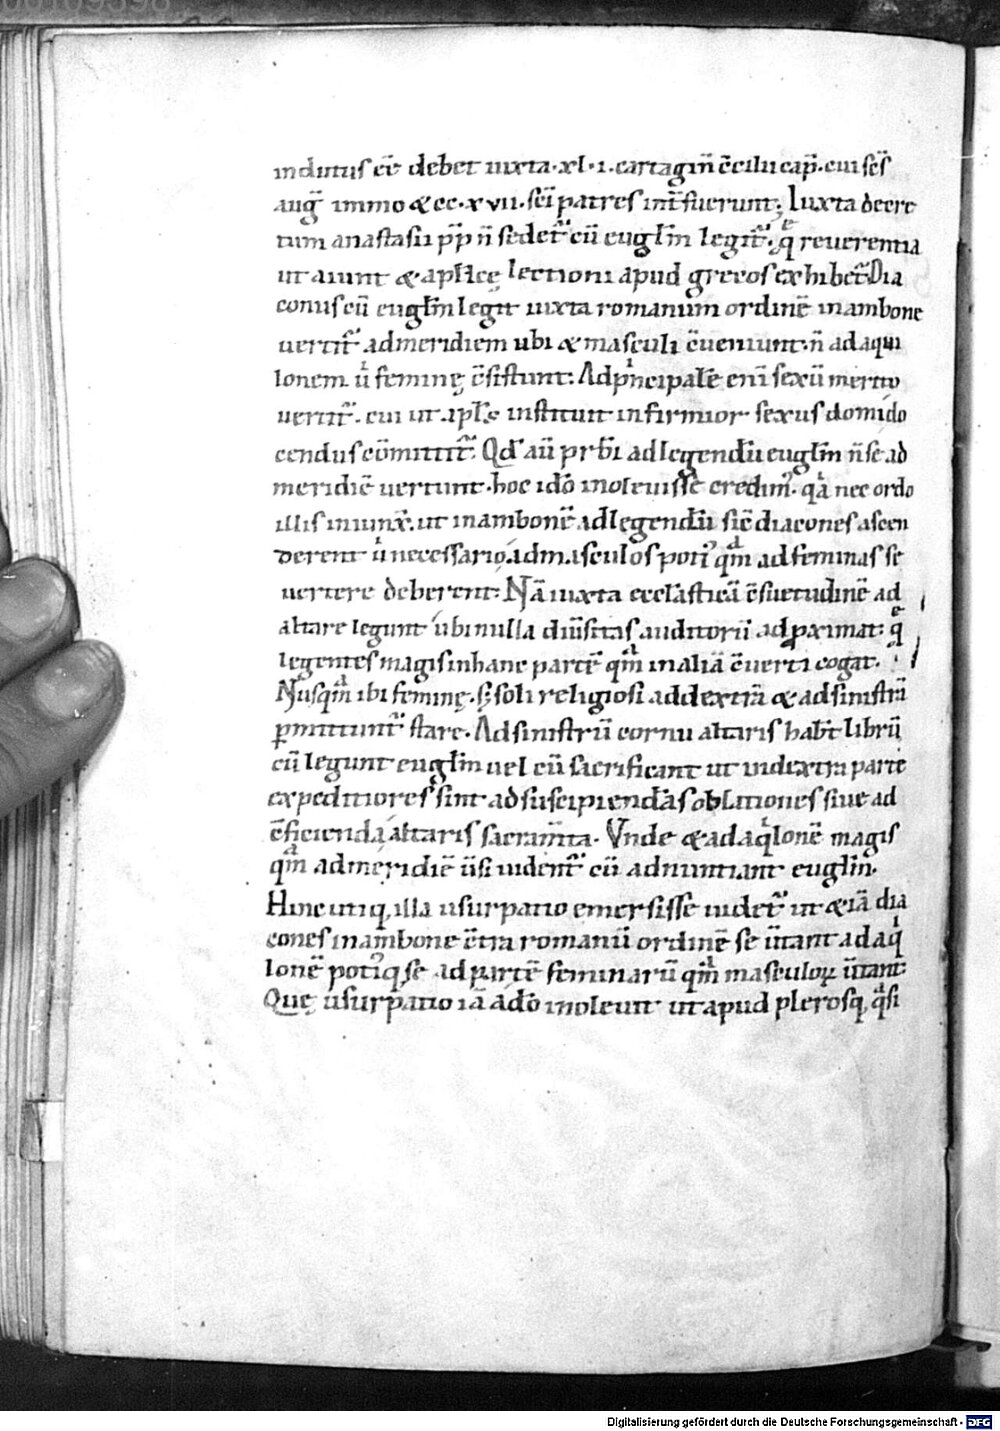 indutus eē debet iuxta·xl·i·cartagiñ c̄cilii cap̄·cui sc̄s
aug̃ immo & cc·xvii·sc̄i patres int̃fuerunt; Iuxta decre
tum anastasii pp̄ ñ sedet᷑ cū eugl̄m legit᷑·q̄ reuerentia
ut aiunt & apl̄icę lectioni apud grecos exhibet᷑. Dia
conus cū eugl̄m legit iuxta romanum ordinē in ambone
uertit᷑ ad meridiem ubi & masculi c̄ueniunt·ñ ad aqui
lonem ů feminę c̄sistunt: Ad pⁱncipalē eni sexū merito
uertit᷑·cui ut apl̄s instituit infirmior sexus domi do
cendus cōmittit᷑: Qđ aū prb̄i ad legendū eugl̄m ñ se ad
meridiē uertunt·hoc idō inoleuisse credim᷒·qͣa nec ordo
illis iniunx̄·ut in ambonē ad legendū sic̄ diacones ascen
derent ů necessario ad masculos poti᷒ qͣm ad feminas se
uertere deberent: Nā iuxta eccl̄asticā c̄suetudinē ad
altare legunt ubi nulla diu̅sitas auditorū adꝓximat: q̄
legentes magis in hanc partē qͣm in aliā c̄uerti cogat·
Nusqͣm ibi feminę·s; soli religiosi ad dextrā & ad sinistrā
ꝑmittunt᷑ stare·Ad sinistrū cornu altaris habt̄ librū
cū legunt eugl̄m uel cū sacrificant ut in dextra parte
expeditiores sint ad suscipiendas oblationes siue ad
c̄ficienda altaris sacram̄ta·Vnde & ad aqⁱlonē magis
qͣm ad meridiē ůsi uident᷑ cū adnuntiant eugl̄m·
Hinc utiq; illa usurpatio emersisse uidet᷑ ut & iā dia
cones in ambone c̄tra romanū ordinē se ůtant ad aqⁱ
lonē poti᷒q; se ad partē feminarū qͣm masculoꝝ ůtant:
Quę usurpatio iā adō inoleuit ut apud plerosq; qͣsi